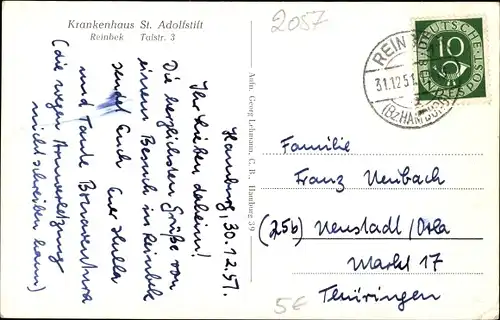 Krankenhaus St. Adolfstift
Reinbek Talstr. 3
2057
Hamburg, 30.12.51.
Ihr Lieben daheim!
Die herzlichsten Grüße von
einem Besuch in Reinbek
sendet Euch Eure Hulla
und Tante Bonaventura
(die wegen Armverletzung
nicht schreiben kann)
Aufn. Georg Lehmann, C. B., Hamburg 39
DEUTSCHE BUNDESPOST
10
REIN
31.12.51
(Bz HAMBURG)
Familie
Franz Neubach
(25b) Neustadl/Orla
Markt 17
Thüringen
5€